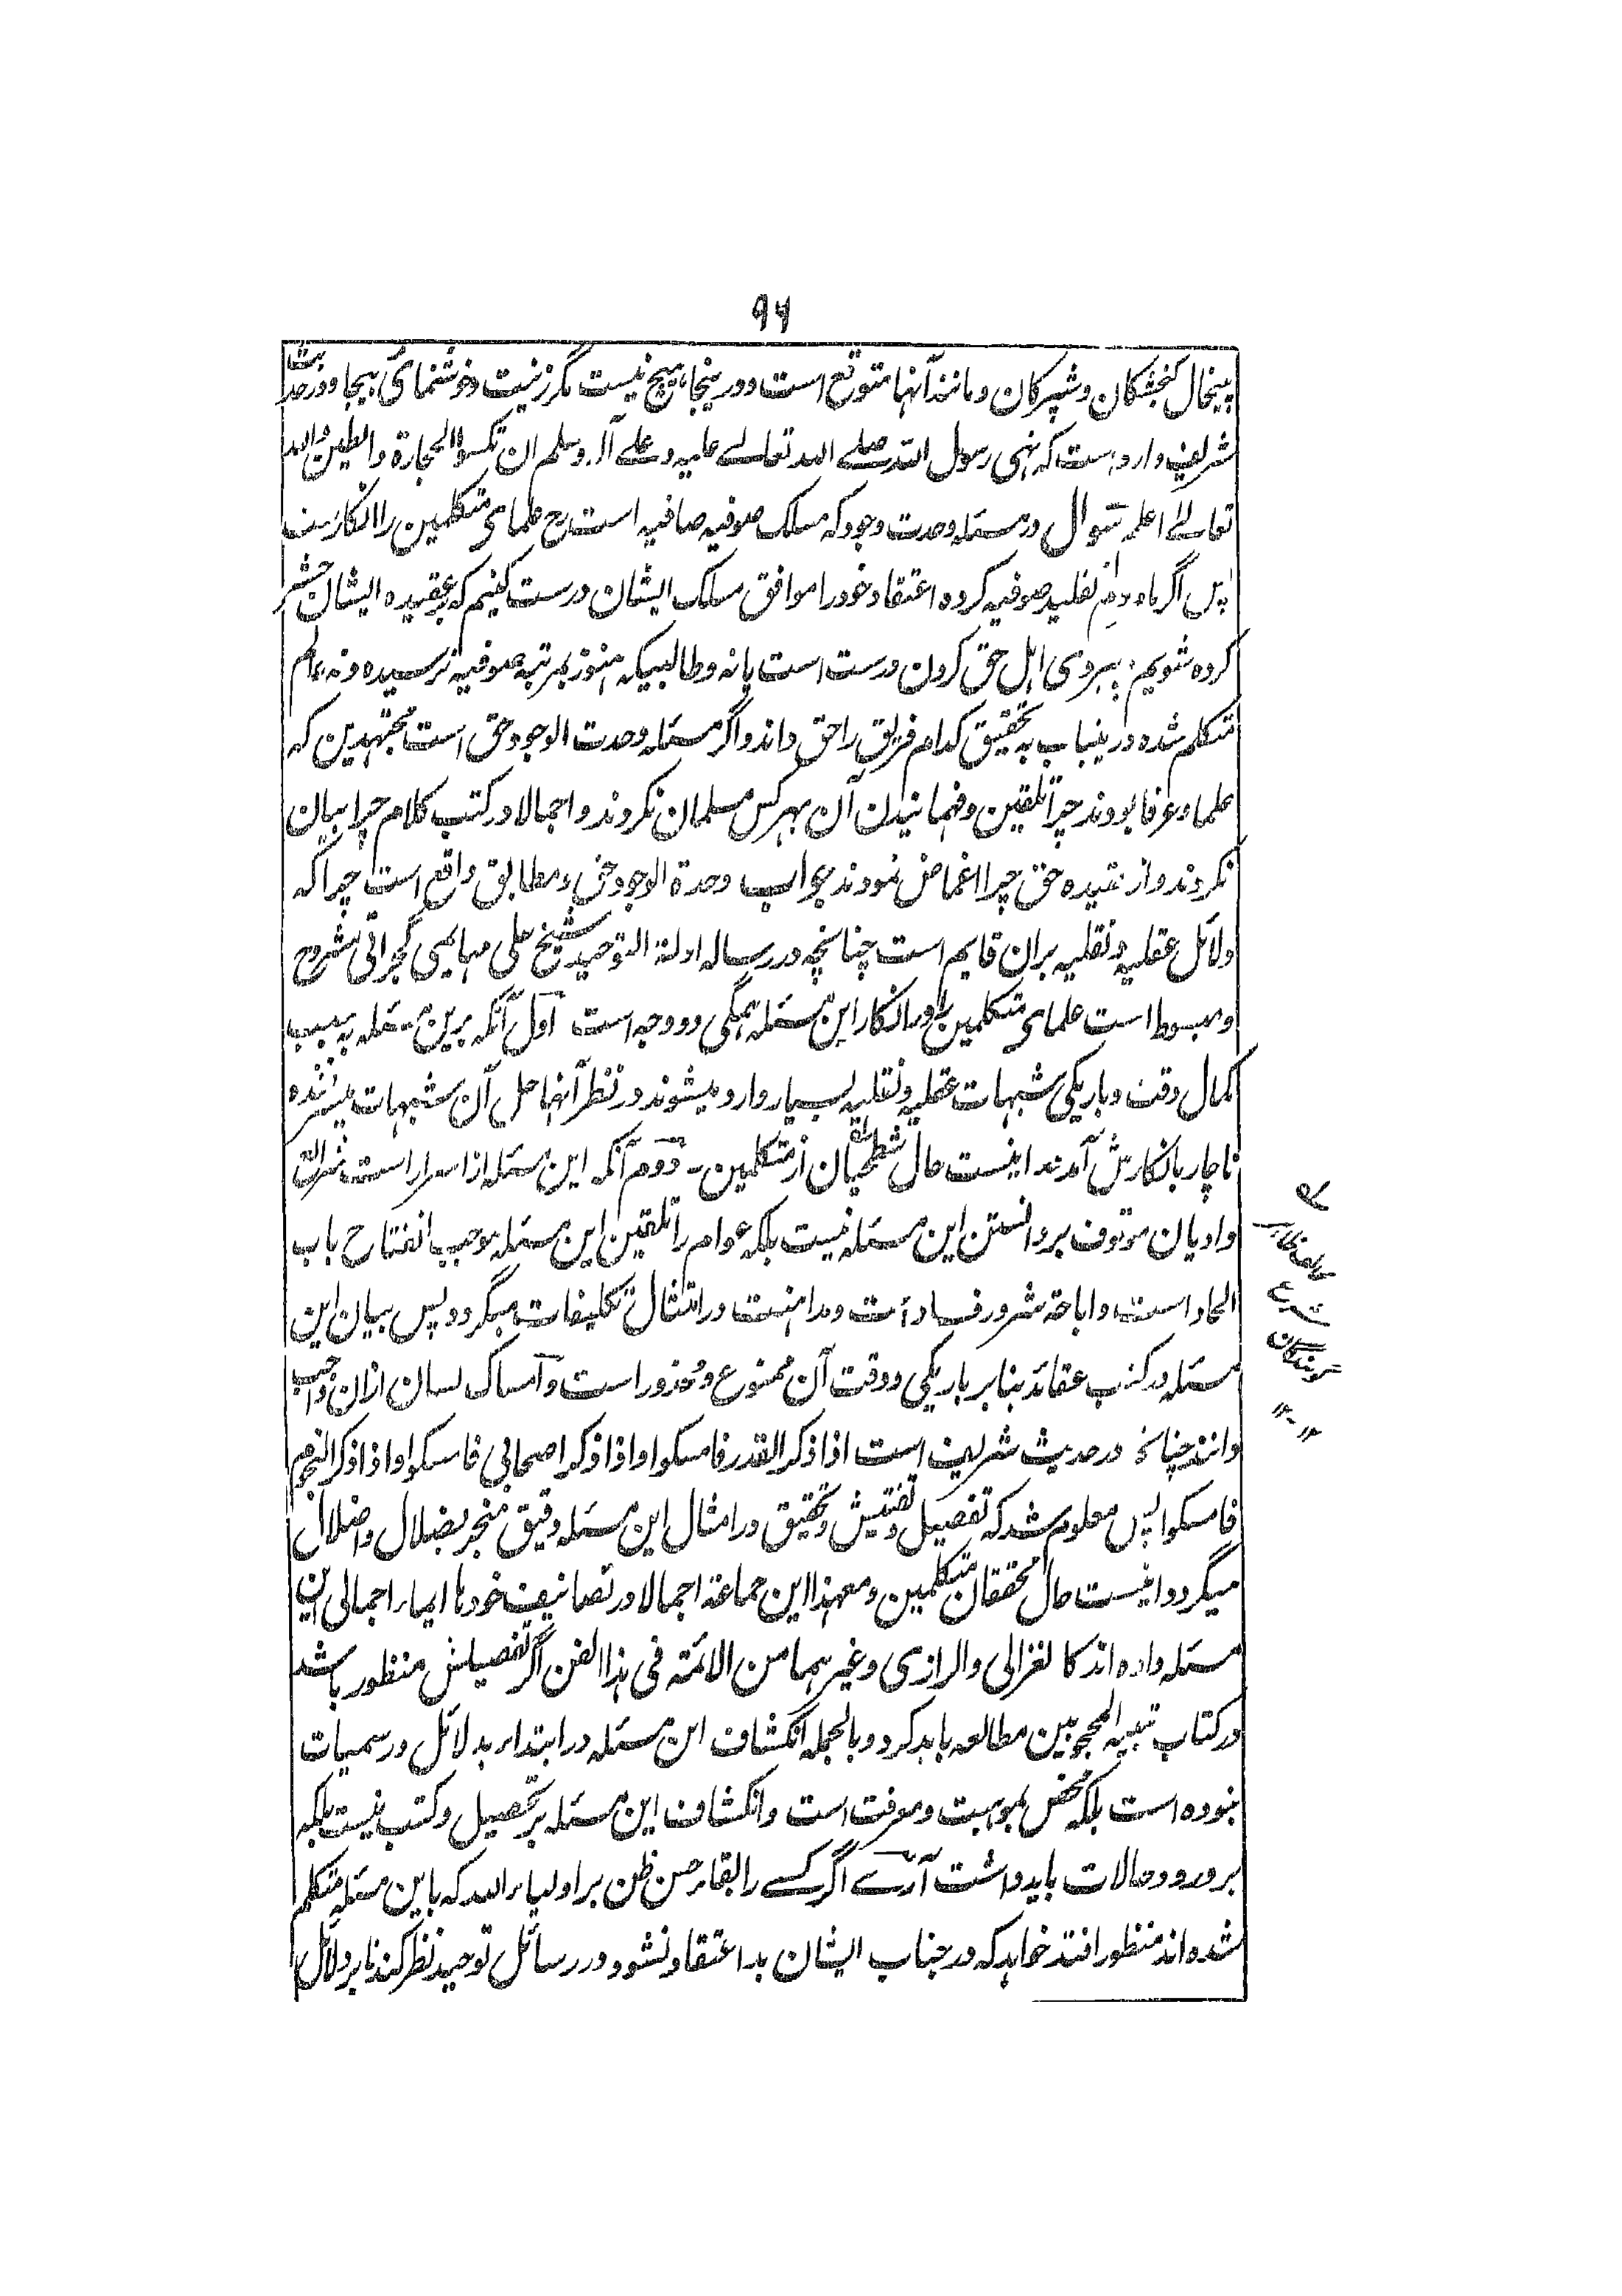 ۹۶
پیخال کنجشکان و شپرکان و مانند آنها متوقع است و درینجا هیچ نیست مگر زینت و خوشنمائی بیجا و در حدیث
شریف وارد است که نهی رسول الله صلے الله تعالے علیه و علے آله وسلم ان نکسو الحجارة والطین والله
تعالےٰ اعلم سوال در مسئله وحدت وجود که مسلک صوفیه صافیه است رح علمای متکلمین را انکار است
پس اگر ما مردم تقلید صوفیه کرده اعتقاد خود را موافق مسلک ایشان درست کنیم که بر عقیده ایشان حشر
کرده شویم پیروی اهل حق کردن درست است یا نه و طالبیکه هنوز بمرتبه صوفیه نرسیده و نه عالم
متکلم شده درینباب به تحقیق کدام فریق را حق داند و اگر مسئله وحدت الوجود حق است مجتهدین که
علما و عرفا بودند چرا تلقین و فهمانیدن آن بهر کس مسلمان نکردند و اجمالا در کتب کلام چرا بیان
نکردند و از عقیده حق چرا اغماض نمودند جواب وحدة الوجود حق و مطابق واقع است چرا که
دلائل عقلیه و نقلیه بران قایم است چنانچه در رساله ادلة التوحید شیخ علی مهایمی گجراتی مشروح
و مبسوط است علمای متکلمین را در انکار این مسئله همگی دو وجه است اول آنکه برین مسئله به سبب
کمال دقت و باریکی شبهات عقلیه و نقلیه بسیار وارد میشوند و در نظر آنها حل آن شبهات میسر نشده
ناچار بانکارش آمدند اینست حال سطحیان از متکلمین - دوم آنکه این مسئله از اسرار است شرائع
و ادیان موقوف بر دانستن این مسئله نیست بلکه عوام را تلقین این مسئله موجب انفتاح باب
الحاد است و اباحة شرور فساد است و مداهنت در امتثال تکلیفات میگردد پس بیان این
مسئله در کتب عقائد بنا بر باریکی و دقت آن ممنوع و محذور است و امساک لسان ازان واجب
دانند چنانچه در حدیث شریف است اذا ذکر القدر فامسکوا و اذا ذکر اصحابی فامسکوا و اذا ذکر النجوم
فامسکوا پس معلوم شد که تفصیل و تفتیش و تحقیق در امثال این مسئله دقیق منجر بضلال و اضلال
میگردد اینست حال محققان متکلمین و معهذا این جماعة اجمالا در تصانیف خودها ایماء اجمالی این
مسئله داده اند کالغزالی والرازی وغیرهما من الائمة فی هذا الفن اگر تفصیلش منظور باشد
در کتاب تنبیه المحجوبین مطالعه باید کرد و بالجمله انکشاف این مسئله در ابتداء بدلائل و رسمیات
نبوده است بلکه محض بموهبت و معرفت است و انکشاف این مسئله بر تحصیل و کتب نیست بلکه
بر ورود حالات باید داشت آرے اگر کسے را القاء حسن ظن بر اولیاء الله که باین مسئله متکلم
شده اند منظور افتد خواهد که در جناب ایشان بد اعتقاد نشود در رسائل توحید نظر کند تا بر دلائل
شرع
گویندگان
۱۲-۱۲